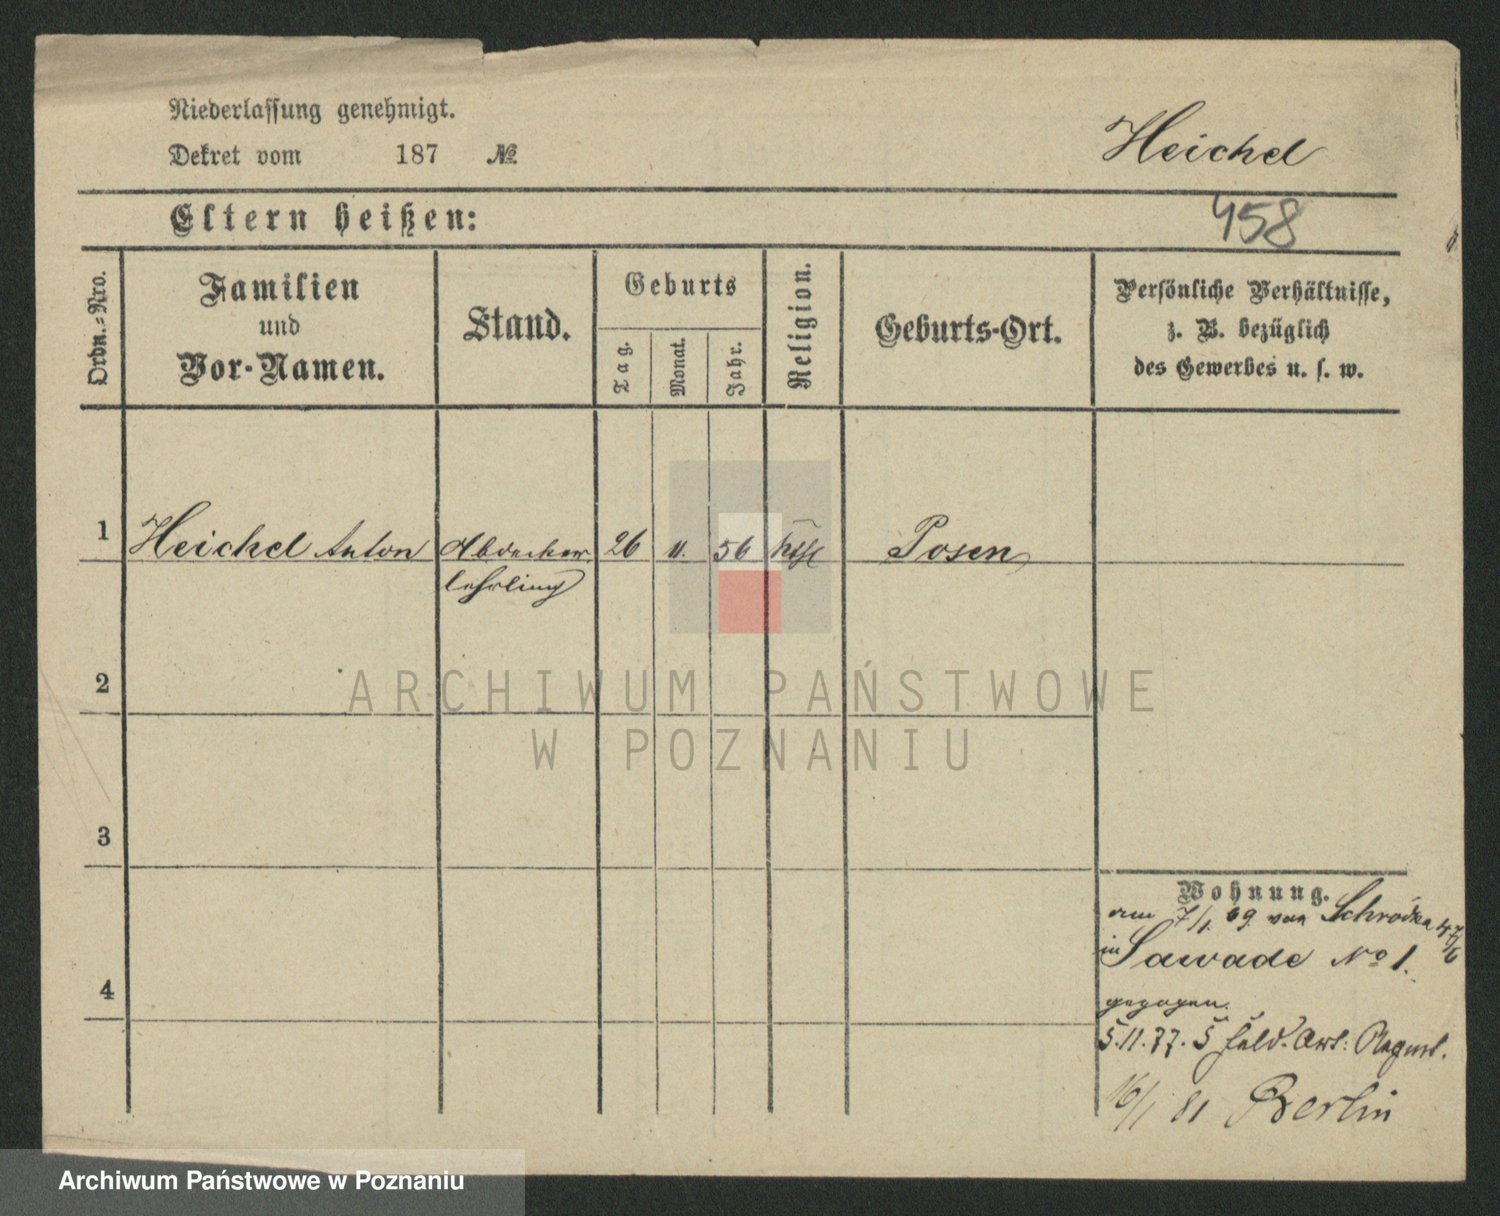 Niederlassung genehmigt.
Dekret vom 187 №
Heichel
Eltern heißen:
458
Ordn.-Nro.
Familien
und
Vor-Namen.
Stand.
Geburts
Tag.
Monat.
Jahr.
Religion.
Geburts-Ort.
Persönliche Verhältnisse,
z. B. bezüglich
des Gewerbes u. s. w.
1 Heichel Anton Abdecker 26 11. 56 Posen
lehrling
2
3
4
Wohnung.
am 7/1. 69 von Schrodka 47/6
in Sawade No 1.
gezogen.
5.11.77. 5 Feld. Art. Regmt.
16/1 81 Berlin
ARCHIWUM PAŃSTWOWE
W POZNANIU
Archiwum Państwowe w Poznaniu